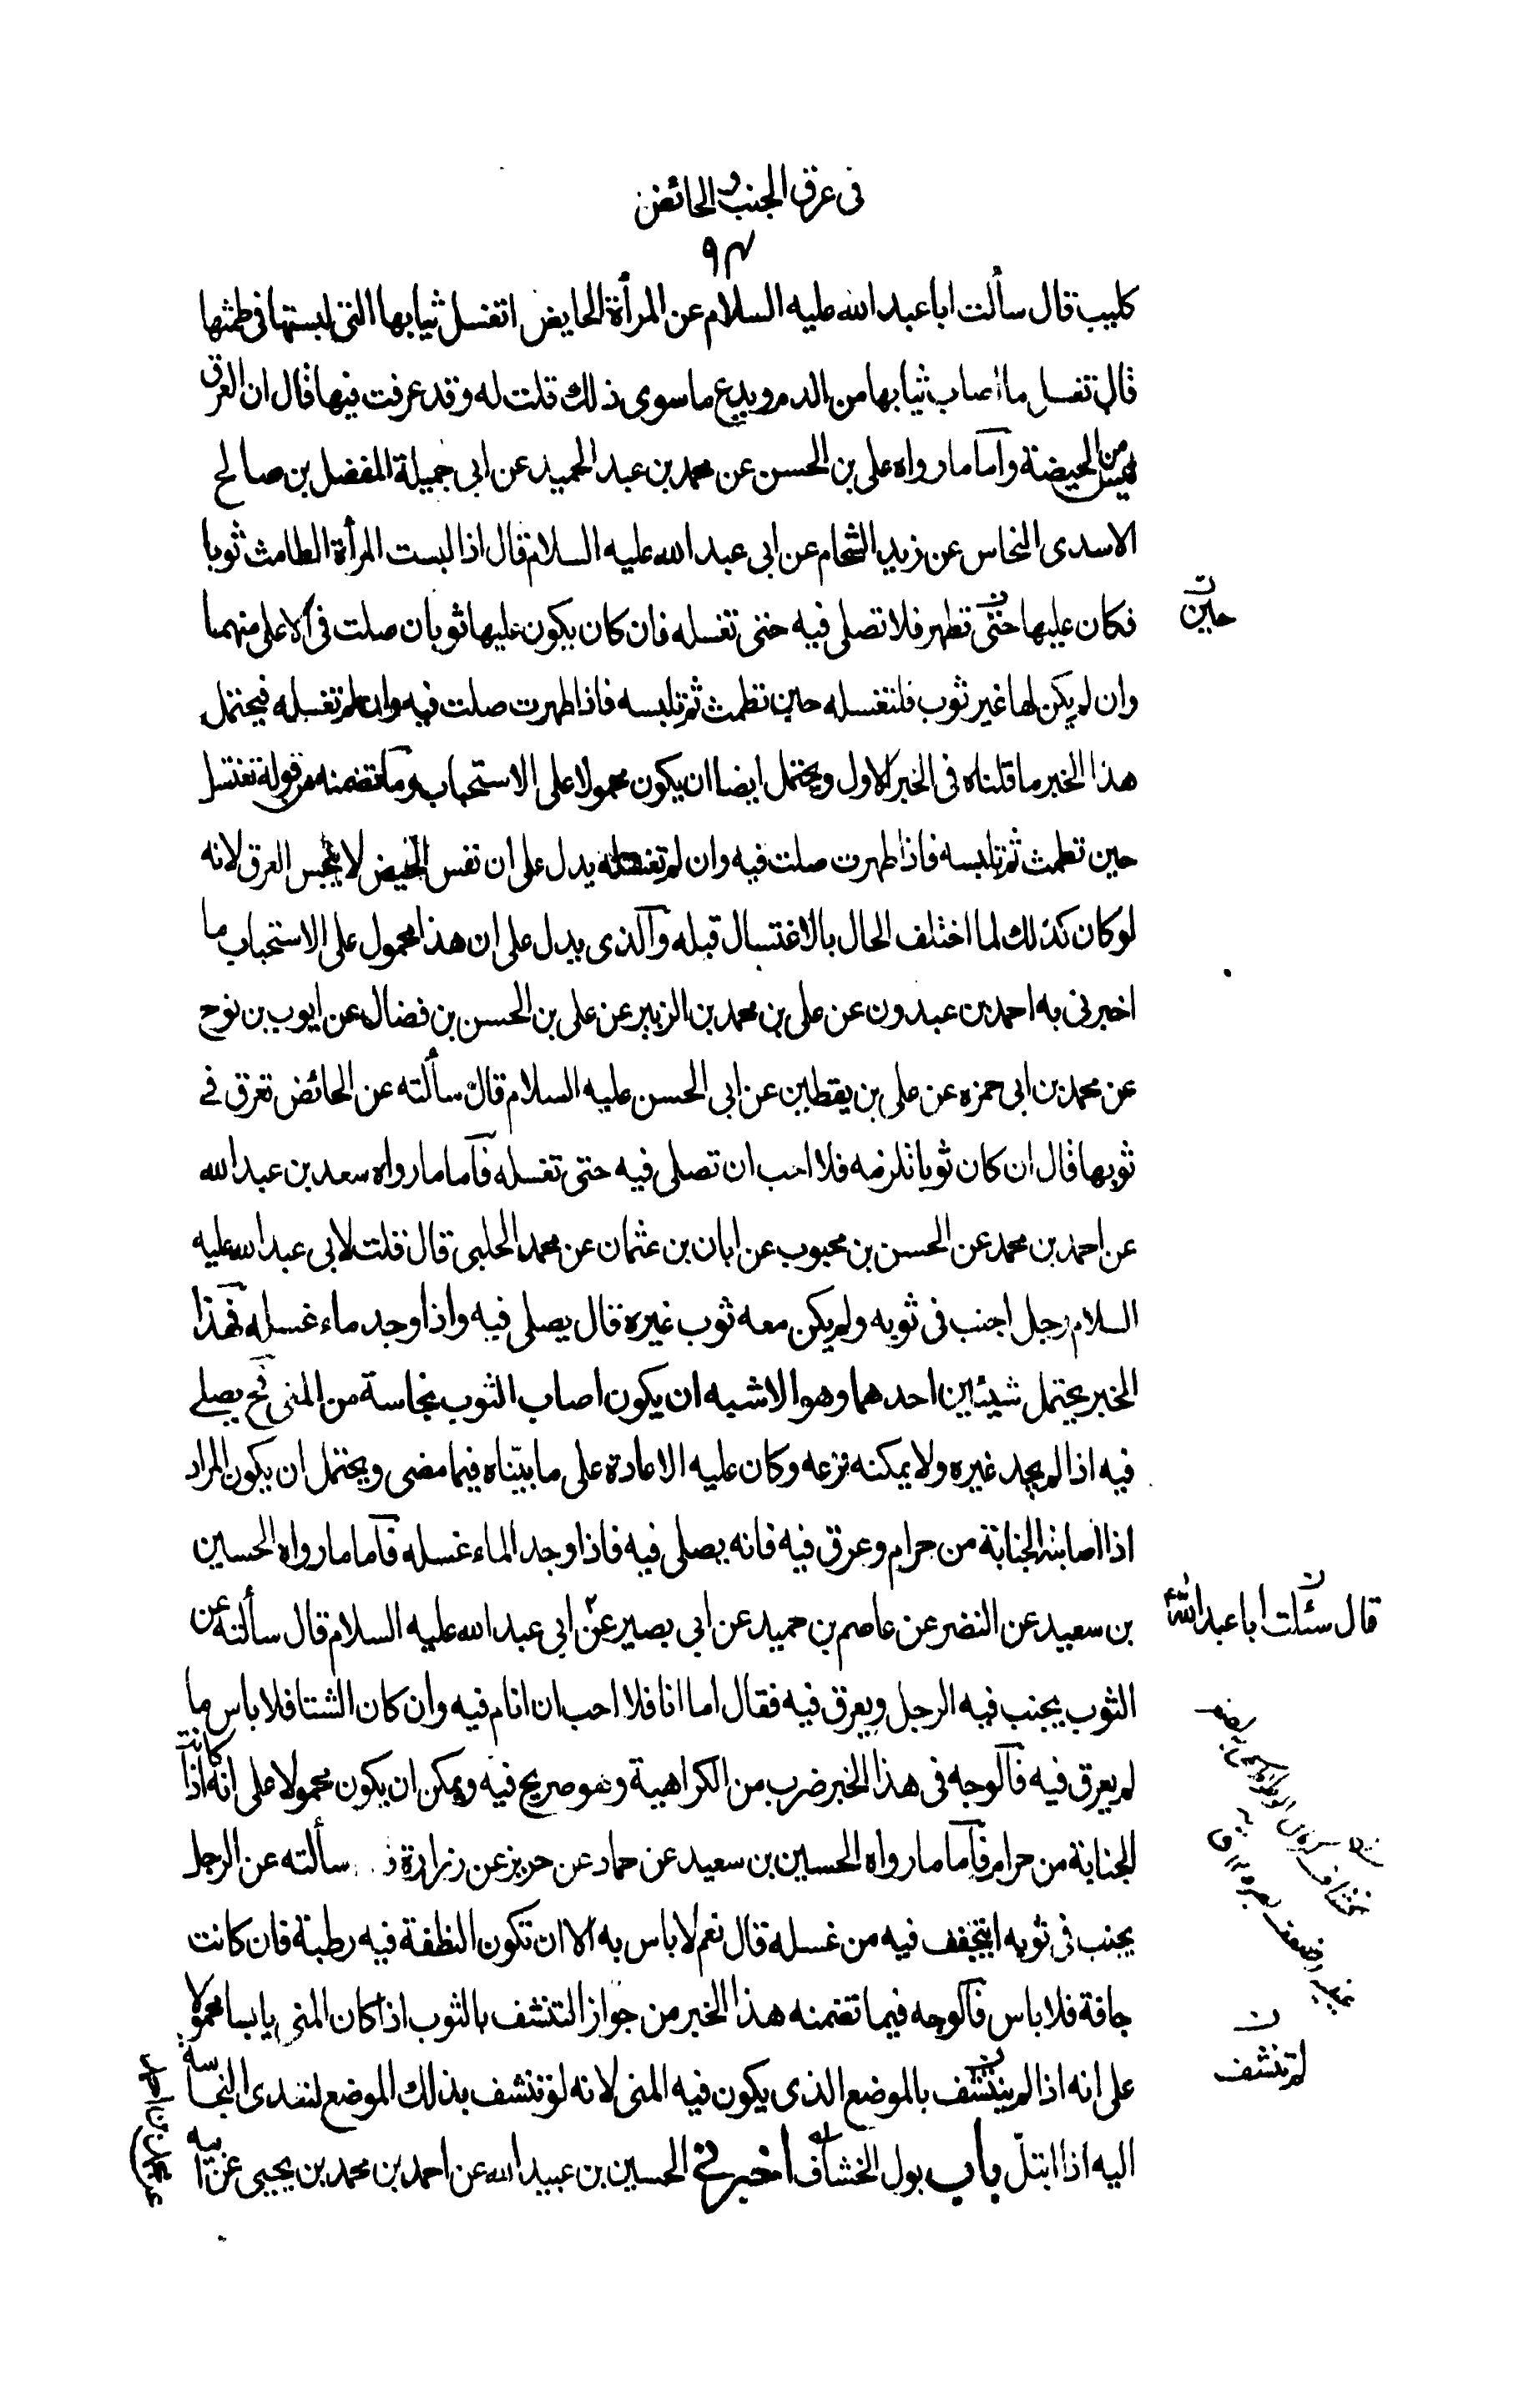 فى عرق الجنب و الحائض
٩٣
كليب قال سألت ابا عبد الله عليه السلام عن المرأة الحايض اتغسل ثيابها التى لبستها فى طمثها
قال تغسل ما اصاب ثيابها من الدم و يدع ما سوى ذلك قلت له و قد عرقت فيها قال ان العرق
ليس من الحيضة و اما ما رواه على بن الحسن عن محمد بن عبد الحميد عن ابى جميلة المفضل بن صالح
الاسدى النخاس عن زيد الشحام عن ابى عبد الله عليه السلام قال اذا لبست المرأة الطامث ثوبا
فكان عليها حتى تطهر فلا تصلى فيه حتى تغسله فان كان يكون عليها ثوبان صلت فى الاعلى منهما
حين ن
وان لم يكن لها غير ثوب فلتغسله حين تطمث ثم تلبسه فاذا طهرت صلت فيه وان لم تغسله فيحتمل
هذا الخبر ما قلناه فى الخبر الاول و يحتمل ايضا ان يكون محمولا على الاستحباب و ما تضمنه من قوله تغتسل
حين تطمث ثم تلبسه فاذا طهرت صلت فيه وان لم تغسله يدل على ان نفس الحيض لا ينجس العرق لانه
لو كان كذلك لما اختلف الحال بالاغتسال قبله و الذى يدل على ان هذا محمول على الاستحباب ما
اخبرنى به احمد بن عبدون عن على بن محمد بن الزبير عن على بن الحسن بن فضال عن ايوب بن نوح
عن محمد بن ابى حمزه عن على بن يقطين عن ابى الحسن عليه السلام قال سألته عن الحائض تعرق فى
ثوبها قال ان كان ثوبا تلزمه فلا احب ان تصلى فيه حتى تغسله فاما ما رواه سعد بن عبد الله
عن احمد بن محمد عن الحسن بن محبوب عن ابان بن عثمان عن محمد الحلبى قال قلت لابى عبد الله عليه
السلام رجل اجنب فى ثوبه و لم يكن معه ثوب غيره قال يصلى فيه واذا وجد ماء غسله فهذا
الخبر يحتمل شيئين احدهما وهو الاشبه ان يكون اصاب الثوب نجاسة من المنى فح يصلے
فيه اذا لم يجد غيره ولا يمكنه نزعه وكان عليه الاعادة على ما بيّناه فيما مضى و يحتمل ان يكون المراد
اذا اصابته الجنابة من حرام و عرق فيه فانه يصلى فيه فاذا وجد الماء غسله فاما ما رواه الحسين
بن سعيد عن النضر عن عاصم بن حميد عن ابى بصير عن ابى عبد الله عليه السلام قال سألته عن
قال سئلت ابا عبد اللهؑ ن
الثوب يجنب فيه الرجل و يعرق فيه فقال اما انا فلا احب ان انام فيه وان كان الشتا فلا باس ما
لم يعرق فيه فالوجه فى هذا الخبر ضرب من الكراهية وهو صريح فيه و يمكن ان يكون محمولا على انه اذا كانت
الجنابة من حرام فاما ما رواه الحسين بن سعيد عن حماد عن حريز عن زرارة سألته عن الرجل
يجنب فى ثوبه ايتجفف فيه من غسله قال نعم لا باس به الا ان تكون النطفة فيه رطبة فان كانت
جافة فلا باس فالوجه فيما تضمنه هذا الخبر من جواز التنشف بالثوب اذا كان المنى يابسا محمولا
على انه اذا لم يتنشف بالموضع الذى يكون فيه المنى لانه لو تنشف بذلك الموضع لتعدى النجاسة
لم تنشف ن
اليه اذا ابتلّ باب بول الخشاف اخبرنى الحسين بن عبيد الله عن احمد بن محمد بن يحيى عن ابيه